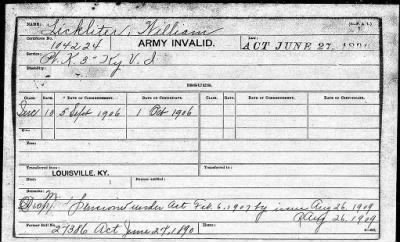 NAME: Lickliter, William
Certificate No. 104224 ARMY INVALID. Law: ACT JUNE 27, 1890
Service: Pt. K. 3" Ky V. I
Disability:
ISSUES.
CLASS. RATE. DATE OF COMMENCEMENT. DATE OF CERTIFICATE. CLASS. RATE. DATE OF COMMENCEMENT. DATE OF CERTIFICATE.
10 5 Sept 1906 1 Oct 1906
Transferred from: Transferred to:
LOUISVILLE, KY.
Remarks:
Pension under Act Feb. 6, 1907 by issue Aug 26, 1909
Aug 26, 1909
Former Roll No. 27386 Act June 27, 1890